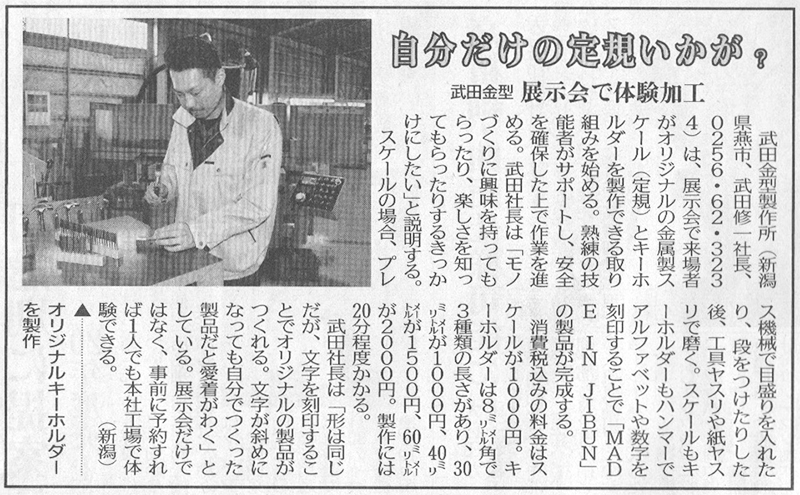 自分だけの定規いかが？
武田金型 展示会で体験加工
武田金型製作所（新潟
県燕市、武田修一社長、
0256・62・323
4）は、展示会で来場者
がオリジナルの金属製ス
ケール（定規）とキーホ
ルダーを製作できる取り
組みを始める。熟練の技
能者がサポートし、安全
を確保した上で作業を進
める。武田社長は「モノ
づくりに興味を持っても
らったり、楽しさを知っ
てもらったりするきっか
けにしたい」と説明する。
スケールの場合、プレ
ス機械で目盛りを入れた
り、段をつけたりした
後、工具ヤスリや紙ヤス
リで磨く。スケールもキ
ーホルダーもハンマーで
アルファベットや数字を
刻印することで「MAD
E IN JIBUN」
の製品が完成する。
消費税込みの料金はス
ケールが1000円。キ
ーホルダーは8ミリメートル角で
3種類の長さがあり、30
ミリメートルが1000円、40ミリ
メートルが1500円、60ミリメートル
が2000円。製作には
20分程度かかる。
武田社長は「形は同じ
だが、文字を刻印するこ
とでオリジナルの製品が
つくれる。文字が斜めに
なっても自分でつくった
製品だと愛着がわく」と
している。展示会だけで
はなく、事前に予約すれ
ば1人でも本社工場で体
験できる。（新潟）
▲オリジナルキーホルダー
を製作